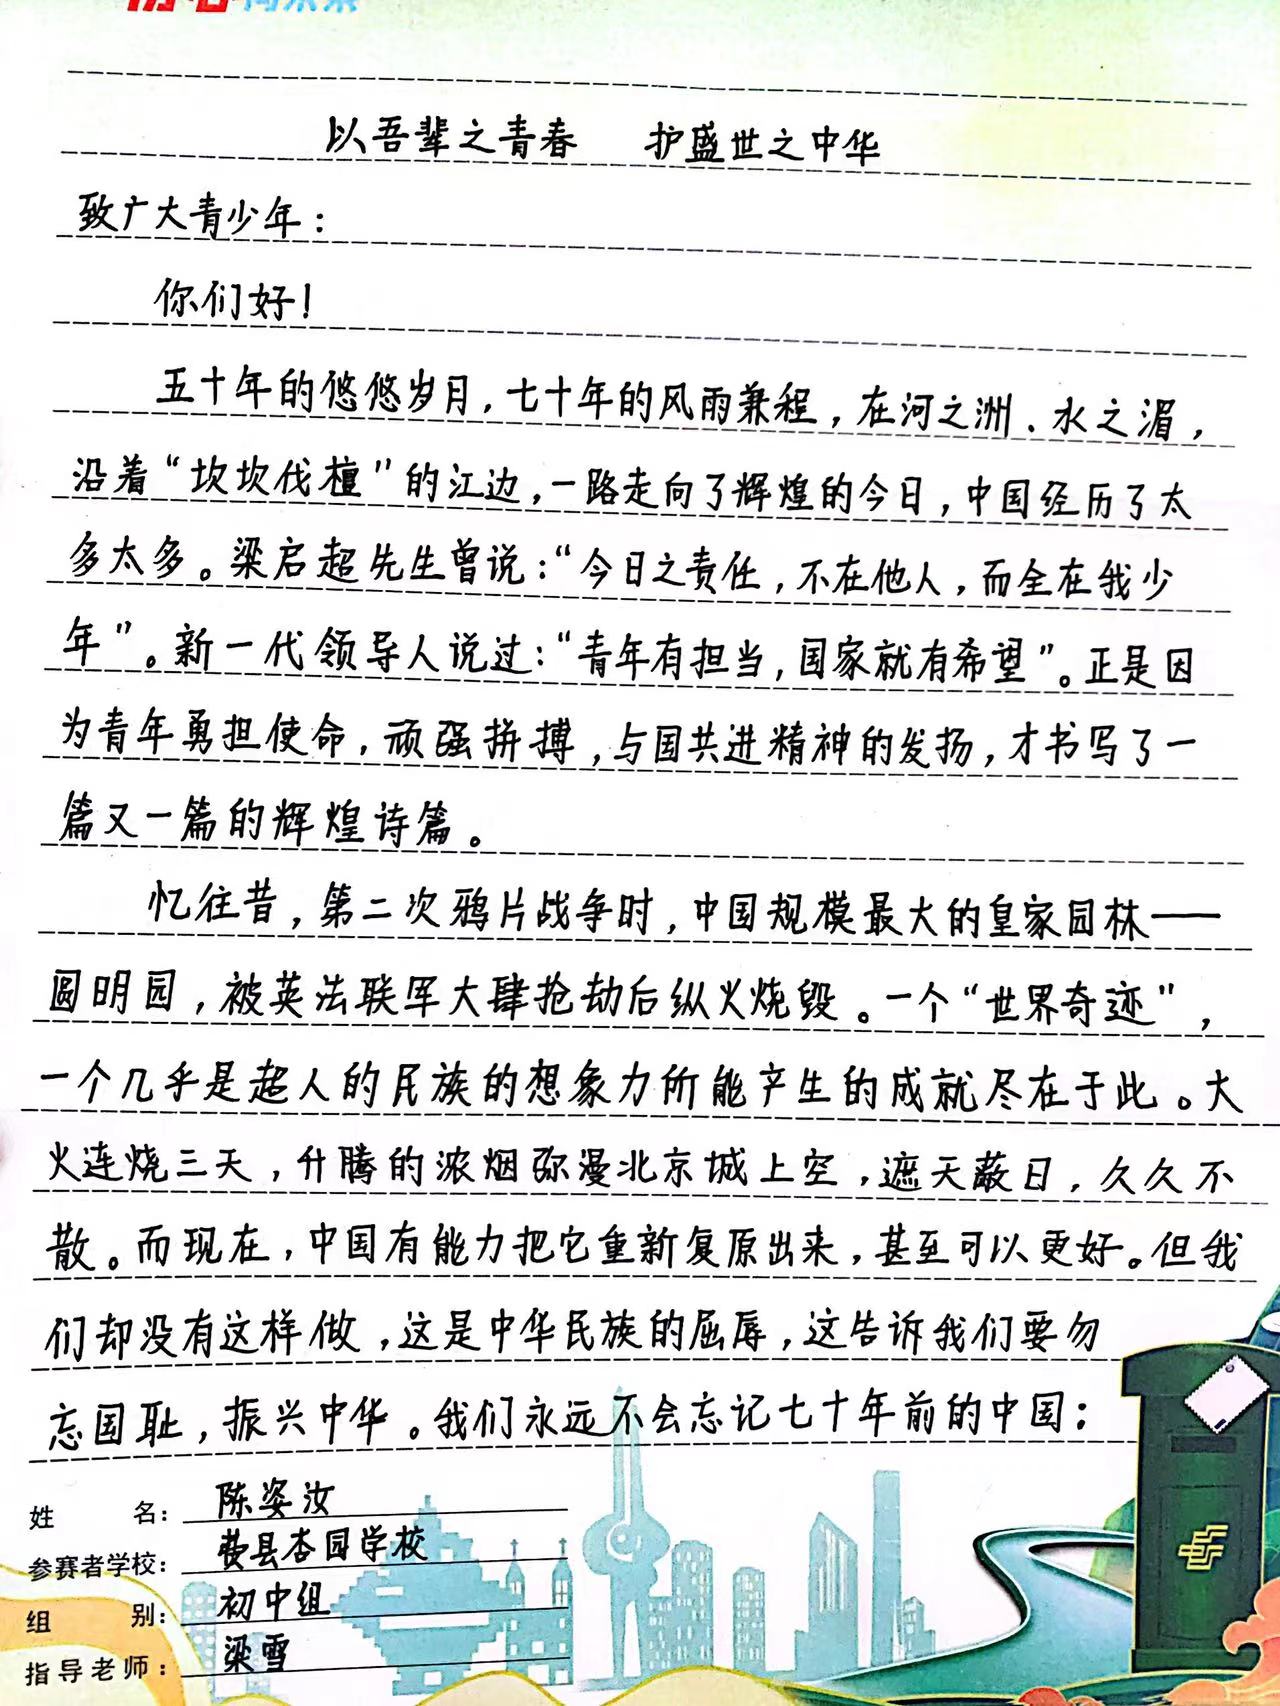 以吾辈之青春 护盛世之中华
致广大青少年：
你们好！
五十年的悠悠岁月，七十年的风雨兼程，在河之洲、水之湄，
沿着“坎坎伐檀”的江边，一路走向了辉煌的今日，中国经历了太
多太多。梁启超先生曾说：“今日之责任，不在他人，而全在我少
年”。新一代领导人说过：“青年有担当，国家就有希望”。正是因
为青年勇担使命，顽强拼搏，与国共进精神的发扬，才书写了一
篇又一篇的辉煌诗篇。
忆往昔，第二次鸦片战争时，中国规模最大的皇家园林——
圆明园，被英法联军大肆抢劫后纵火烧毁。一个“世界奇迹”，
一个几乎是超人的民族的想象力所能产生的成就尽在于此。大
火连烧三天，升腾的浓烟弥漫北京城上空，遮天蔽日，久久不
散。而现在，中国有能力把它重新复原出来，甚至可以更好。但我
们却没有这样做，这是中华民族的屈辱，这告诉我们要勿
忘国耻，振兴中华。我们永远不会忘记七十年前的中国：
姓 名：陈姿汝
参赛者学校：费县杏园学校
组 别：初中组
指导老师：梁雪